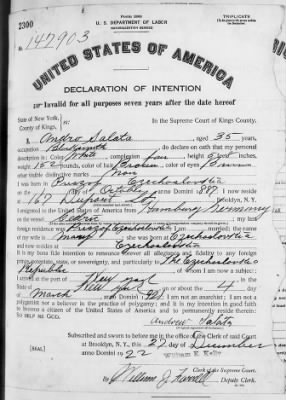 2300
Form 2203
U. S. DEPARTMENT OF LABOR
NATURALIZATION SERVICE
TRIPLICATE
No. 147903
UNITED STATES OF AMERICA
DECLARATION OF INTENTION
Invalid for all purposes seven years after the date hereof
State of New York,
County of Kings,
ss:
In the Supreme Court of Kings County.
I, Andro Salata aged 35 years,
occupation Blacksmith, do declare on oath that my personal
description is: Color White, complexion fair, height 5 feet inches,
weight 152 pounds, color of hair Brown, color of eyes
other visible distinctive marks non
I was born in Czechoslovakia
on the day of October, anno Domini 1887; I now reside
at 167 Dupont St, Brooklyn, N.Y.
I emigrated to the United States of America from Hamburg Germany
on the vessel; my last
foreign residence was Czechoslovakia; I am married; the name
of my wife is Mary; she was born at Czechoslovakia
and now resides at Czechoslovakia
It is my bona fide intention to renounce forever all allegiance and fidelity to any foreign
prince, potentate, state, or sovereignty, and particularly to The Czechoslovak
Republic, of whom I am now a subject;
I arrived at the port of New York, in the
State of New York, on or about the 4 day
of March, anno Domini; I am not an anarchist; I am not a
polygamist nor a believer in the practice of polygamy; and it is my intention in good faith
to become a citizen of the United States of America and to permanently reside therein:
SO HELP ME GOD.
Andrew Salata
Subscribed and sworn to before me in the office of the Clerk of said Court
at Brooklyn, N.Y., this 27 day of December
anno Domini 1922
[SEAL]
William E. Kelly
Clerk of the Supreme Court.
By William J., Deputy Clerk.